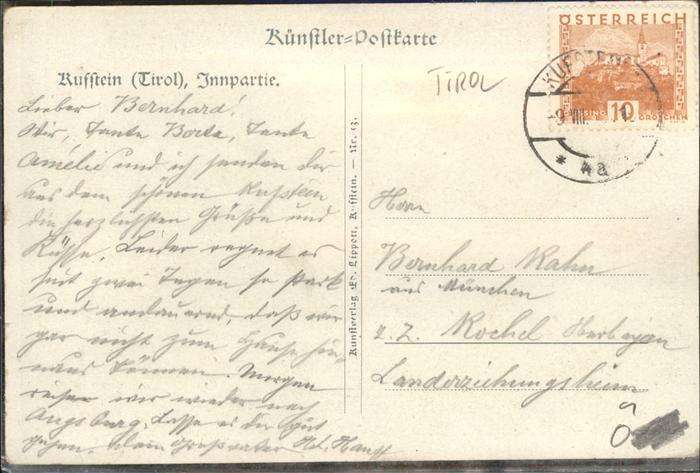 Künstler-Postkarte
ÖSTERREICH
10
GROSCHEN
KUFSTEIN
* 4a
TIROL
Kufstein (Tirol), Innpartie.
Lieber Bernhard!
Wir, Tante Berta, Tante
Amélie und ich senden Dir
aus dem schönen Kufstein
die herzlichsten Grüße und
Küsse. Leider regnet es
seit zwei Tagen so stark
und andauernd, daß wir
gar nicht zum Hause hin-
aus können. Morgen
reisen wir wieder nach
Augsburg. Lasse es Dir gut
gehen. Dein Großvater
Kunstverlag Ed. Lippott, Kufstein. — Nr. 13.
Herrn
Bernhard Kahn
aus München
z. Z. Kochel
Landerziehungsheim
Ö